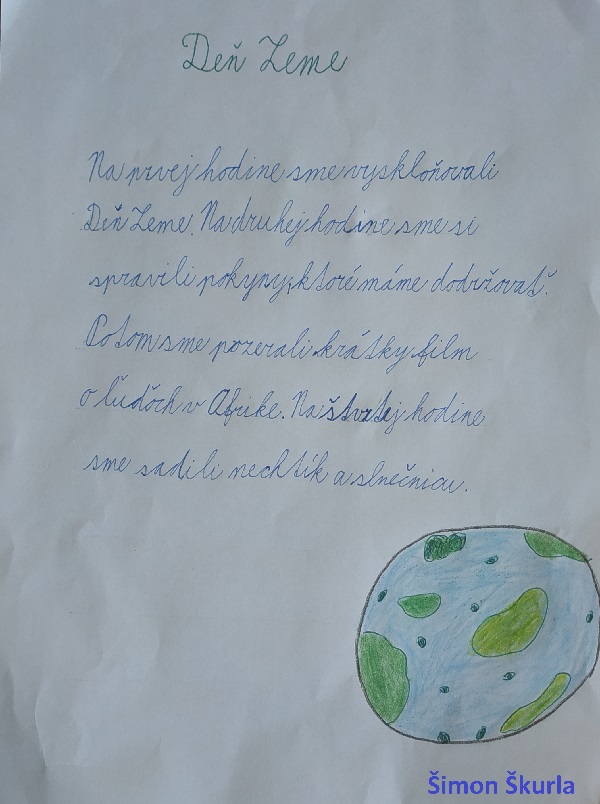 Deň Zeme
Na prvej hodine sme vyskloňovali
Deň Zeme. Na druhej hodine sme si
spravili pokyny, ktoré máme dodržovať.
Potom sme pozerali krátky film
o ľuďoch v Afrike. Na štvrtej hodine
sme sadili nechtík a slnečnicu.
Šimon Škurla